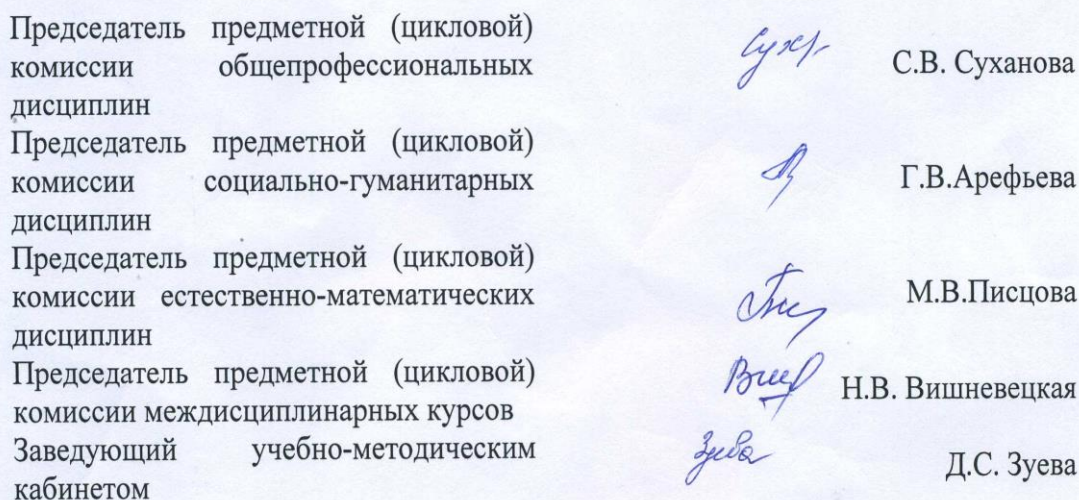 Председатель предметной (цикловой)
комиссии общепрофессиональных
дисциплин
Сух
С.В. Суханова
Председатель предметной (цикловой)
комиссии социально-гуманитарных
дисциплин
Г.В.Арефьева
Председатель предметной (цикловой)
комиссии естественно-математических
дисциплин
М.В.Писцова
Председатель предметной (цикловой)
комиссии междисциплинарных курсов
Н.В. Вишневецкая
Заведующий учебно-методическим
кабинетом
Зуева
Д.С. Зуева